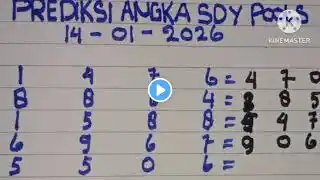 PREDIKSI ANGKA SDY POOLS
14-01-2026
KINEMASTER
1 4 7 6 = 4 7 0
8 8 4 = 8 5
1 5 8 8 = 9 4 7
6 9 6 7 = 9 0 6
5 5 0 6 =